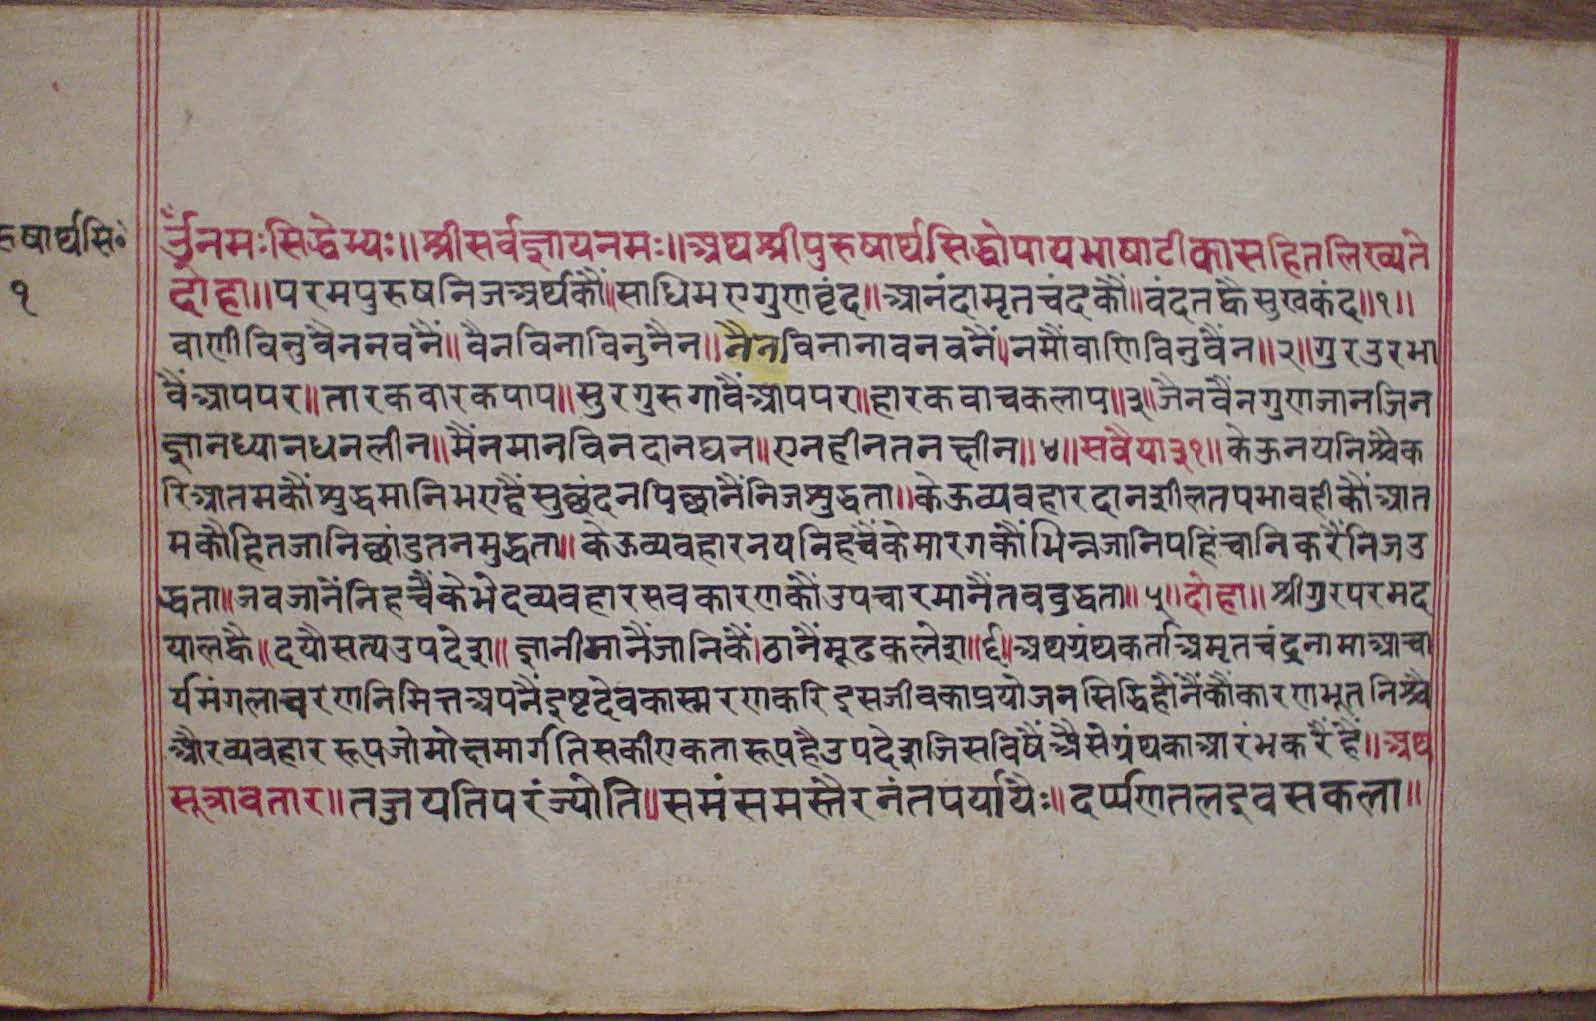 रुषार्थसि॰
१
ॐनमःसिद्धेभ्यः॥श्रीसर्वज्ञायनमः॥अथश्रीपुरुषार्थसिद्ध्योपायभाषाटीकासहितलिख्यते
दोहा॥परमपुरुषनिजअर्थकौं॥साधिभएगुणवृंद॥आनंदामृतचंदकौं॥वंदतह्वैसुखकंद॥१॥
वाणीविनुवैननवनैं॥वैनविनाविनुनैन॥नैनविनानावनवनैं॥नमौंवाणिविनुवैंन॥२॥गुरउरभा
वैंआपपर॥तारकवारकपाप॥सुरगुरुगावैंआपपर॥हारकवाचकलाप॥३॥जैनवैंनगुणजानजिन
ज्ञानध्यानधनलीन॥मैंनमानविनदानघन॥एनहीनतनछीन॥४॥सवैया३१॥केऊनयनिश्चैक
रिआतमकौंशुद्धमानिभएहैंसुछंदनपिछानैंनिजशुद्धता॥केऊव्यवहारदानशीलतपभावहीकौंआत
मकौहितजानिछांडुतनमुद्धता॥केऊव्यवहारनयनिहचैंकेमारगकौंभिन्नजानिपहिंचानिकरैंनिजउ
द्धता॥जवजानैंनिहचैंकेभेदव्यवहारसवकारणकौंउपचारमानैंतववुद्धता॥५॥दोहा॥श्रीगुरपरमद
यालह्वै॥दयौसत्यउपदेश॥ज्ञानीमानैंजानिकैं॥ठानैंमूढकलेश॥६॥अथग्रंथकर्ताअमृतचंद्रनामाआचा
र्यमंगलाचरणनिमित्तअपनैंइष्टदेवकास्मरणकरिइसजीवकाप्रयोजनसिद्धिहौंनैंकौंकारणभूतनिश्चै
औरव्यवहाररूपजोमोक्षमार्गतिसकीएकतारूपहैउपदेशजिसविषैंअैसेग्रंथकाआरंभकरैंहैं॥अथ
सूत्रावतार॥तज्जयतिपरंज्योति॥समंसमस्तैरनंतपर्यायैः॥दर्प्पणतलइवसकला॥